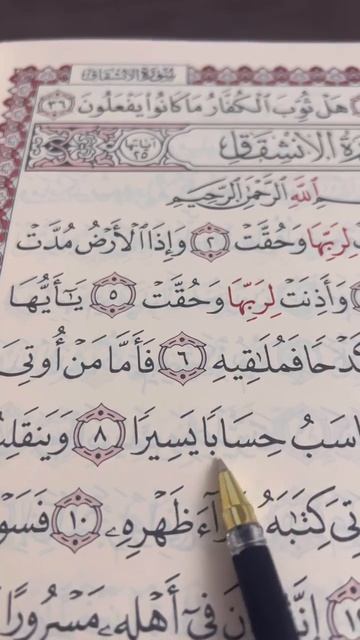 سورة الانشقاق
هل ثوب الكفار ما كانوا يفعلون ٣٦
رة الانشقاق آياتها ٢٥
الله الرحمن الرحيم
لِرَبِّهَا وَحُقَّتْ ٢ وَإِذَا الْأَرْضُ مُدَّتْ
وَأَذِنَتْ لِرَبِّهَا وَحُقَّتْ ٥ يَٰٓأَيُّهَا
كَدْحًا فَمُلَٰقِيهِ ٦ فَأَمَّا مَنْ أُوتِىَ
اسَبُ حِسَابًا يَسِيرًا ٨ وَيَنقَلِبُ
كِتَٰبَهُۥ وَرَآءَ ظَهْرِهِۦ ١٠ فَسَوْ
فِىٓ أَهْلِهِۦ مَسْرُورًا